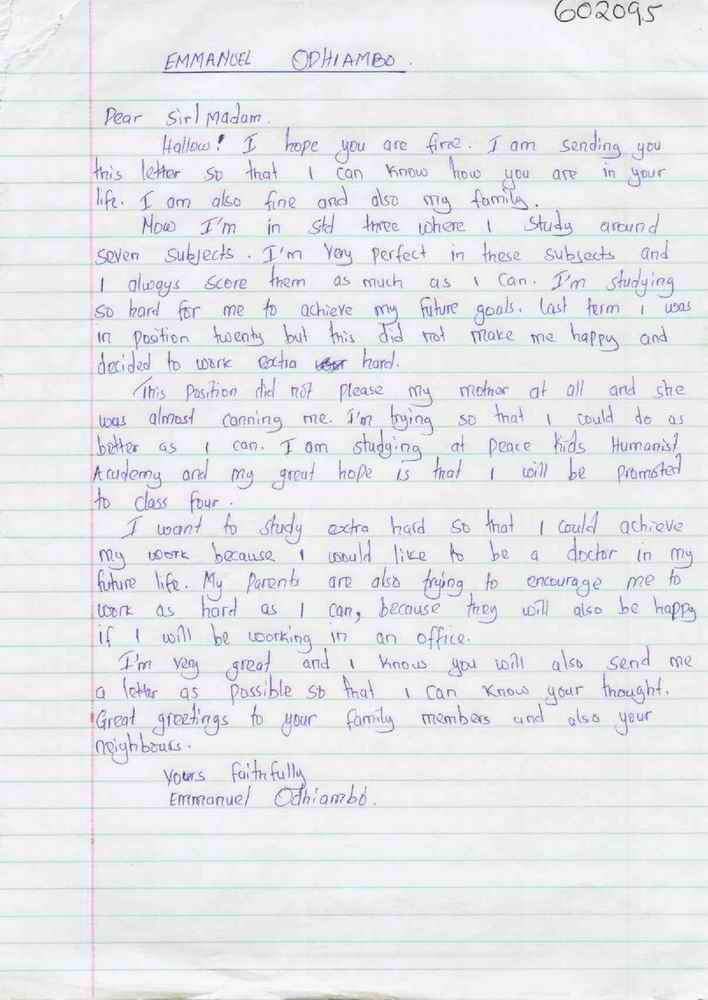 602095
EMMANUEL ODHIAMBO.
Dear Sir/Madam.
Hallow! I hope you are fine. I am sending you
this letter so that I can know how you are in your
life. I am also fine and also my family.
Now I'm in std three where I study around
seven subjects. I'm very perfect in these subjects and
I always score them as much as I can. I'm studying
so hard for me to achieve my future goals. last term I was
in position twenty but this did not make me happy and
decided to work extra hard.
This position did not please my mother at all and she
was almost canning me. I'm trying so that I could do as
better as I can. I am studying at peace kids Humanist
Academy and my great hope is that I will be promoted
to class four.
I want to study extra hard so that I could achieve
my work because I would like to be a doctor in my
future life. My parents are also trying to encourage me to
work as hard as I can, because they will also be happy
if I will be working in an office.
I'm very great and I know you will also send me
a letter as possible so that I can know your thought.
Great greetings to your family members and also your
neighbours.
yours faithfully
Emmanuel Odhiambo.